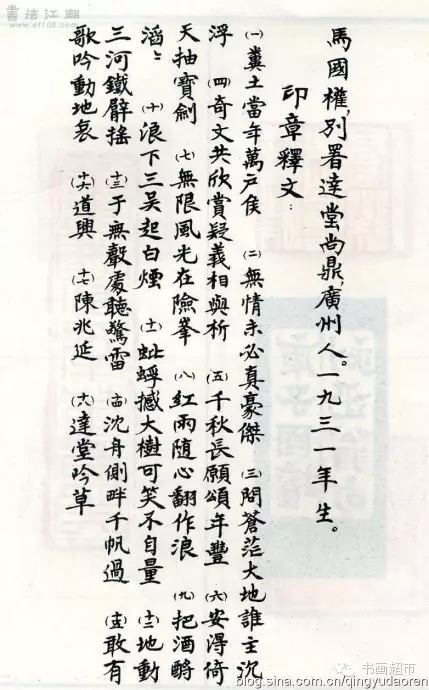 書法江湖
www.ef108.com
馬國權，別署達堂尚鼎，廣州人。一九三一年生。
印章釋文：
(一)糞土當年萬户侯 (二)無情未必真豪傑 (三)問蒼茫大地誰主沉
浮 (四)奇文共欣賞疑義相與析 (五)千秋長願頌年豐 (六)安得倚
天抽寶劍 (七)無限風光在險峯 (八)紅雨隨心翻作浪 (九)把酒酹
滔〻 (十)浪下三吴起白煙 (十一)蚍蜉撼大樹可笑不自量 (十二)地動
三河鐵臂摇 (十三)于無聲處聽驚雷 (十四)沈舟側畔千帆過 (十五)敢有
歌吟動地哀 (十六)道興 (十七)陳兆延 (十八)達堂吟草
书画超市
blog.sina.com.cn/qingyudaoren